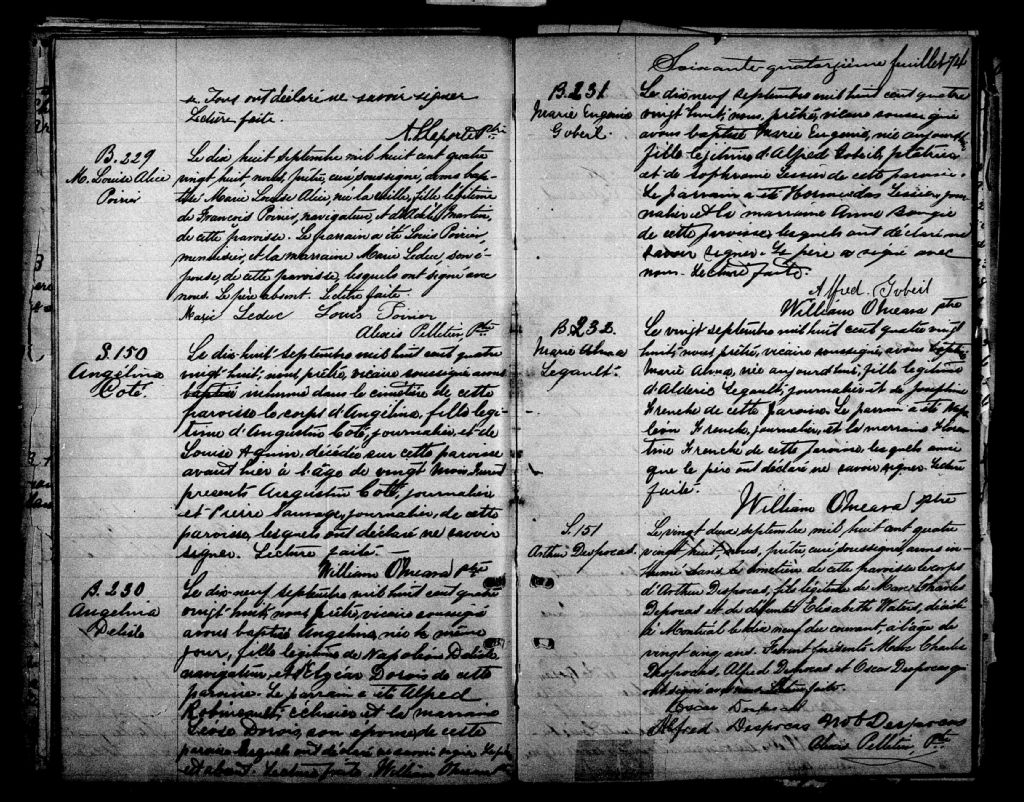 se. Tous ont déclaré ne savoir signer
Lecture faite.
Ptre
B. 229
M. Louise Alice
Poirier
Le dix huit septembre mil huit cent quatre
vingt huit nous, prêtre, curé soussigné, avons bapti-
sé Marie Louise Alice, née la veille, fille légitime
de François Poirier, navigateur, et d'Adèle Martin,
de cette paroisse. Le parrain a été Louis Poirier,
menuisier, et la marraine Marie Leduc, son é-
pouse, de cette paroisse, lesquels ont signé avec
nous. Le père absent. Lecture faite.
Marie Leduc Louis Poirier
Alexis Pelletier, Ptre
S. 150
Angélina
Coté.
Le dix-huit septembre mil huit cent quatre
vingt-huit, nous, prêtre, vicaire soussigné avons
baptisé inhumé dans le cimetière de cette
paroisse le corps d'Angélina, fille légi-
time d'Augustin Coté, journalier, et de
Louise décédée sur cette paroisse
avant hier à l'âge de vingt mois. Furent
présents Augustin Coté, journalier
et Pierre Sauvage, journalier, de cette
paroisse, lesquels ont déclaré ne savoir
signer. Lecture faite.
William O'Meara ptre
B. 230
Angelina
Delisle
Le dix-neuf septembre mil huit cent quatre
vingt-huit, nous, prêtre, vicaire soussigné
avons baptisé Angelina, née le même
jour, fille légitime de Napoléon Delisle
navigateur, et d'Elgéar Dorais de cette
paroisse. Le parrain a été Alfred
Robineault, éclusier et la marraine
Dorais, son épouse, de cette
paroisse lesquels ont déclaré ne savoir signer. Le père
absent. Lecture faite. William O'Meara ptre
Soixante-quatorzième feuillet 74
B. 231
Marie Eugenie
Gobeil.
Le dix-neuf septembre mil huit cent quatre
vingt huit, nous, prêtre, vicaire soussigné
avons baptisé Marie Eugenie, née aujourd'hui
fille légitime d'Alfred Gobeil,
et de Sophronie de cette paroisse.
Le parrain a été Hormisdas jour-
nalier et la marraine Anna Bougie
de cette paroisse, lesquels ont déclaré ne
savoir signer. Le père a signé avec
nous. Lecture faite.
Alfred Gobeil
William O'Meara ptre
B. 232
Marie Alma
Legault.
Le vingt septembre mil huit cent quatre vingt
huit, nous, prêtre, vicaire soussigné, avons baptisé
Marie Alma, née aujourd'hui, fille légitime
d'Aldéric Legault, journalier et de Josephine
Frenche de cette paroisse. Le parrain a été Napo-
léon Frenche, journalier, et la marraine Floren-
tine Frenche de cette paroisse, lesquels ainsi
que le père ont déclaré ne savoir signer. Lecture
faite.
William O'Meara ptre
S. 151
Arthur Desprocas.
Le vingt deux septembre mil huit cent quatre
vingt huit, nous, prêtre, curé soussigné avons in-
humé dans le cimetière de cette paroisse le corps
d'Arthur Desprocas, fils légitime de Marc Charles
Desprocas et de défunte Elisabeth Waters, décédé
à Montréal le dix neuf du courant, à l'âge de
vingt cinq ans. Furent présents Marc Charles
Desprocas, Alfred Desprocas et Oscar Desprocas qui
ont signé avec nous. Lecture faite.
Oscar Desprocas
Alfred Desprocas Desprocas
Alexis Pelletier, Ptre